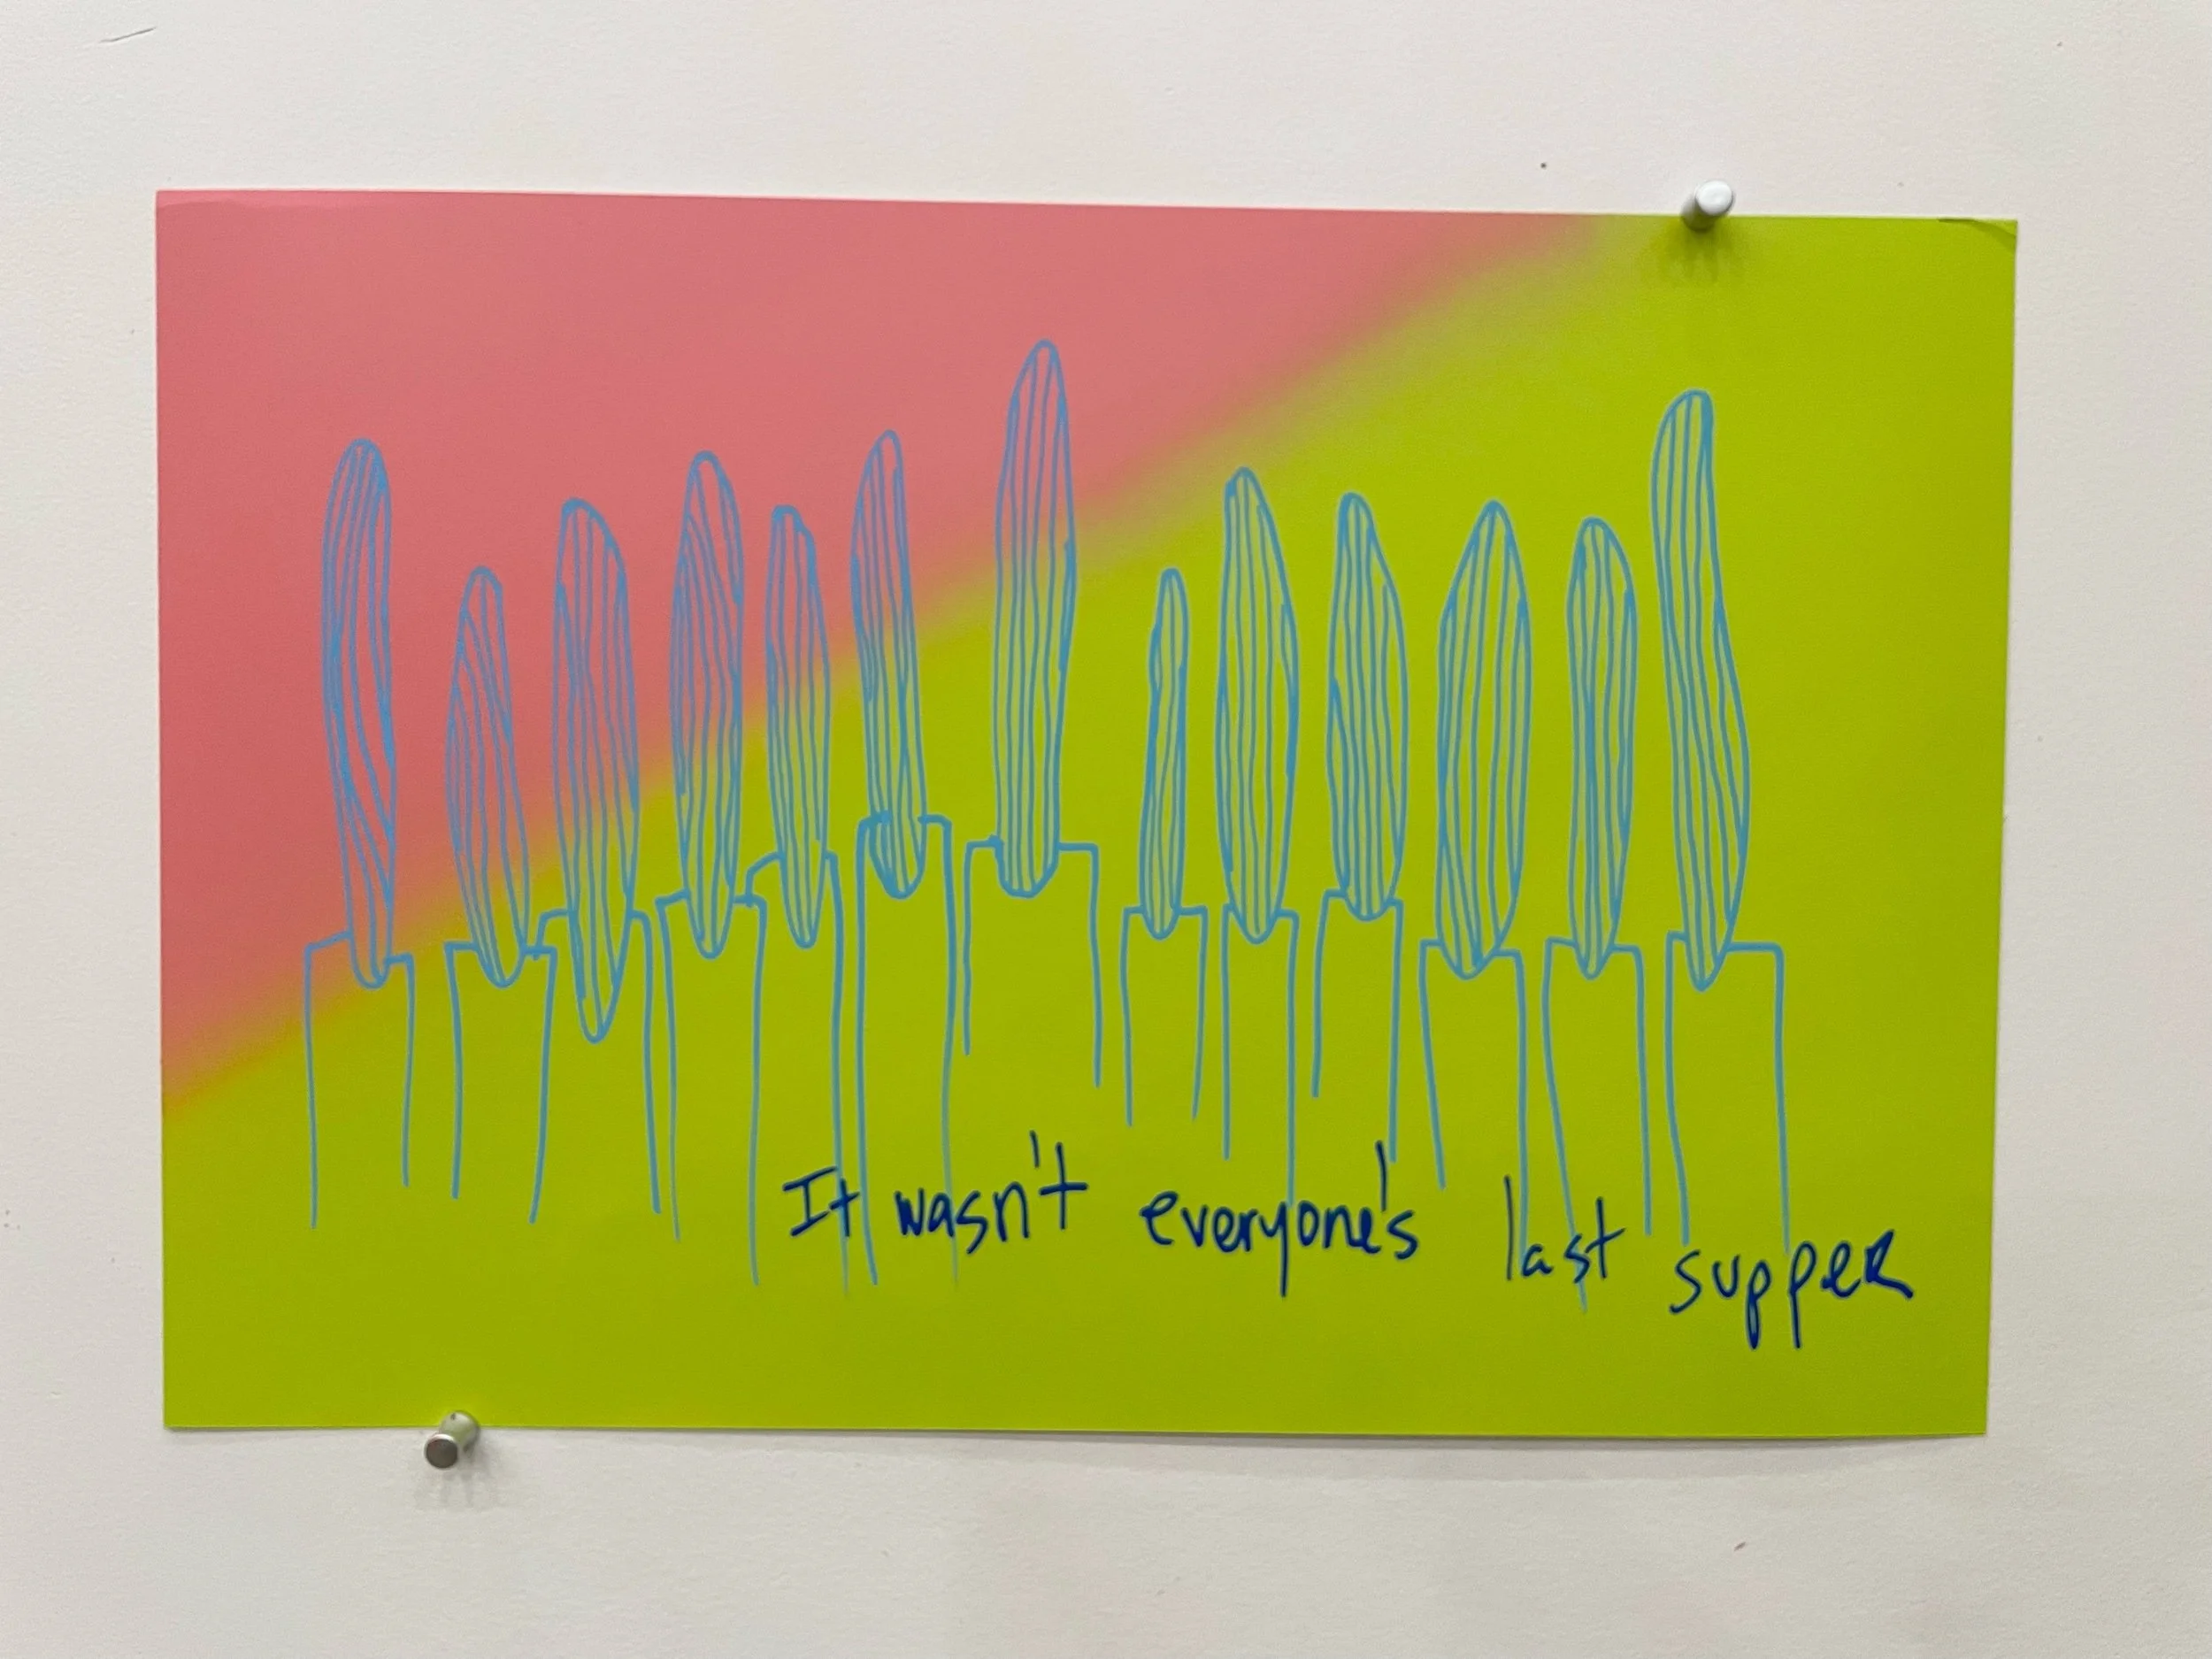 It wasn't everyone's last supper